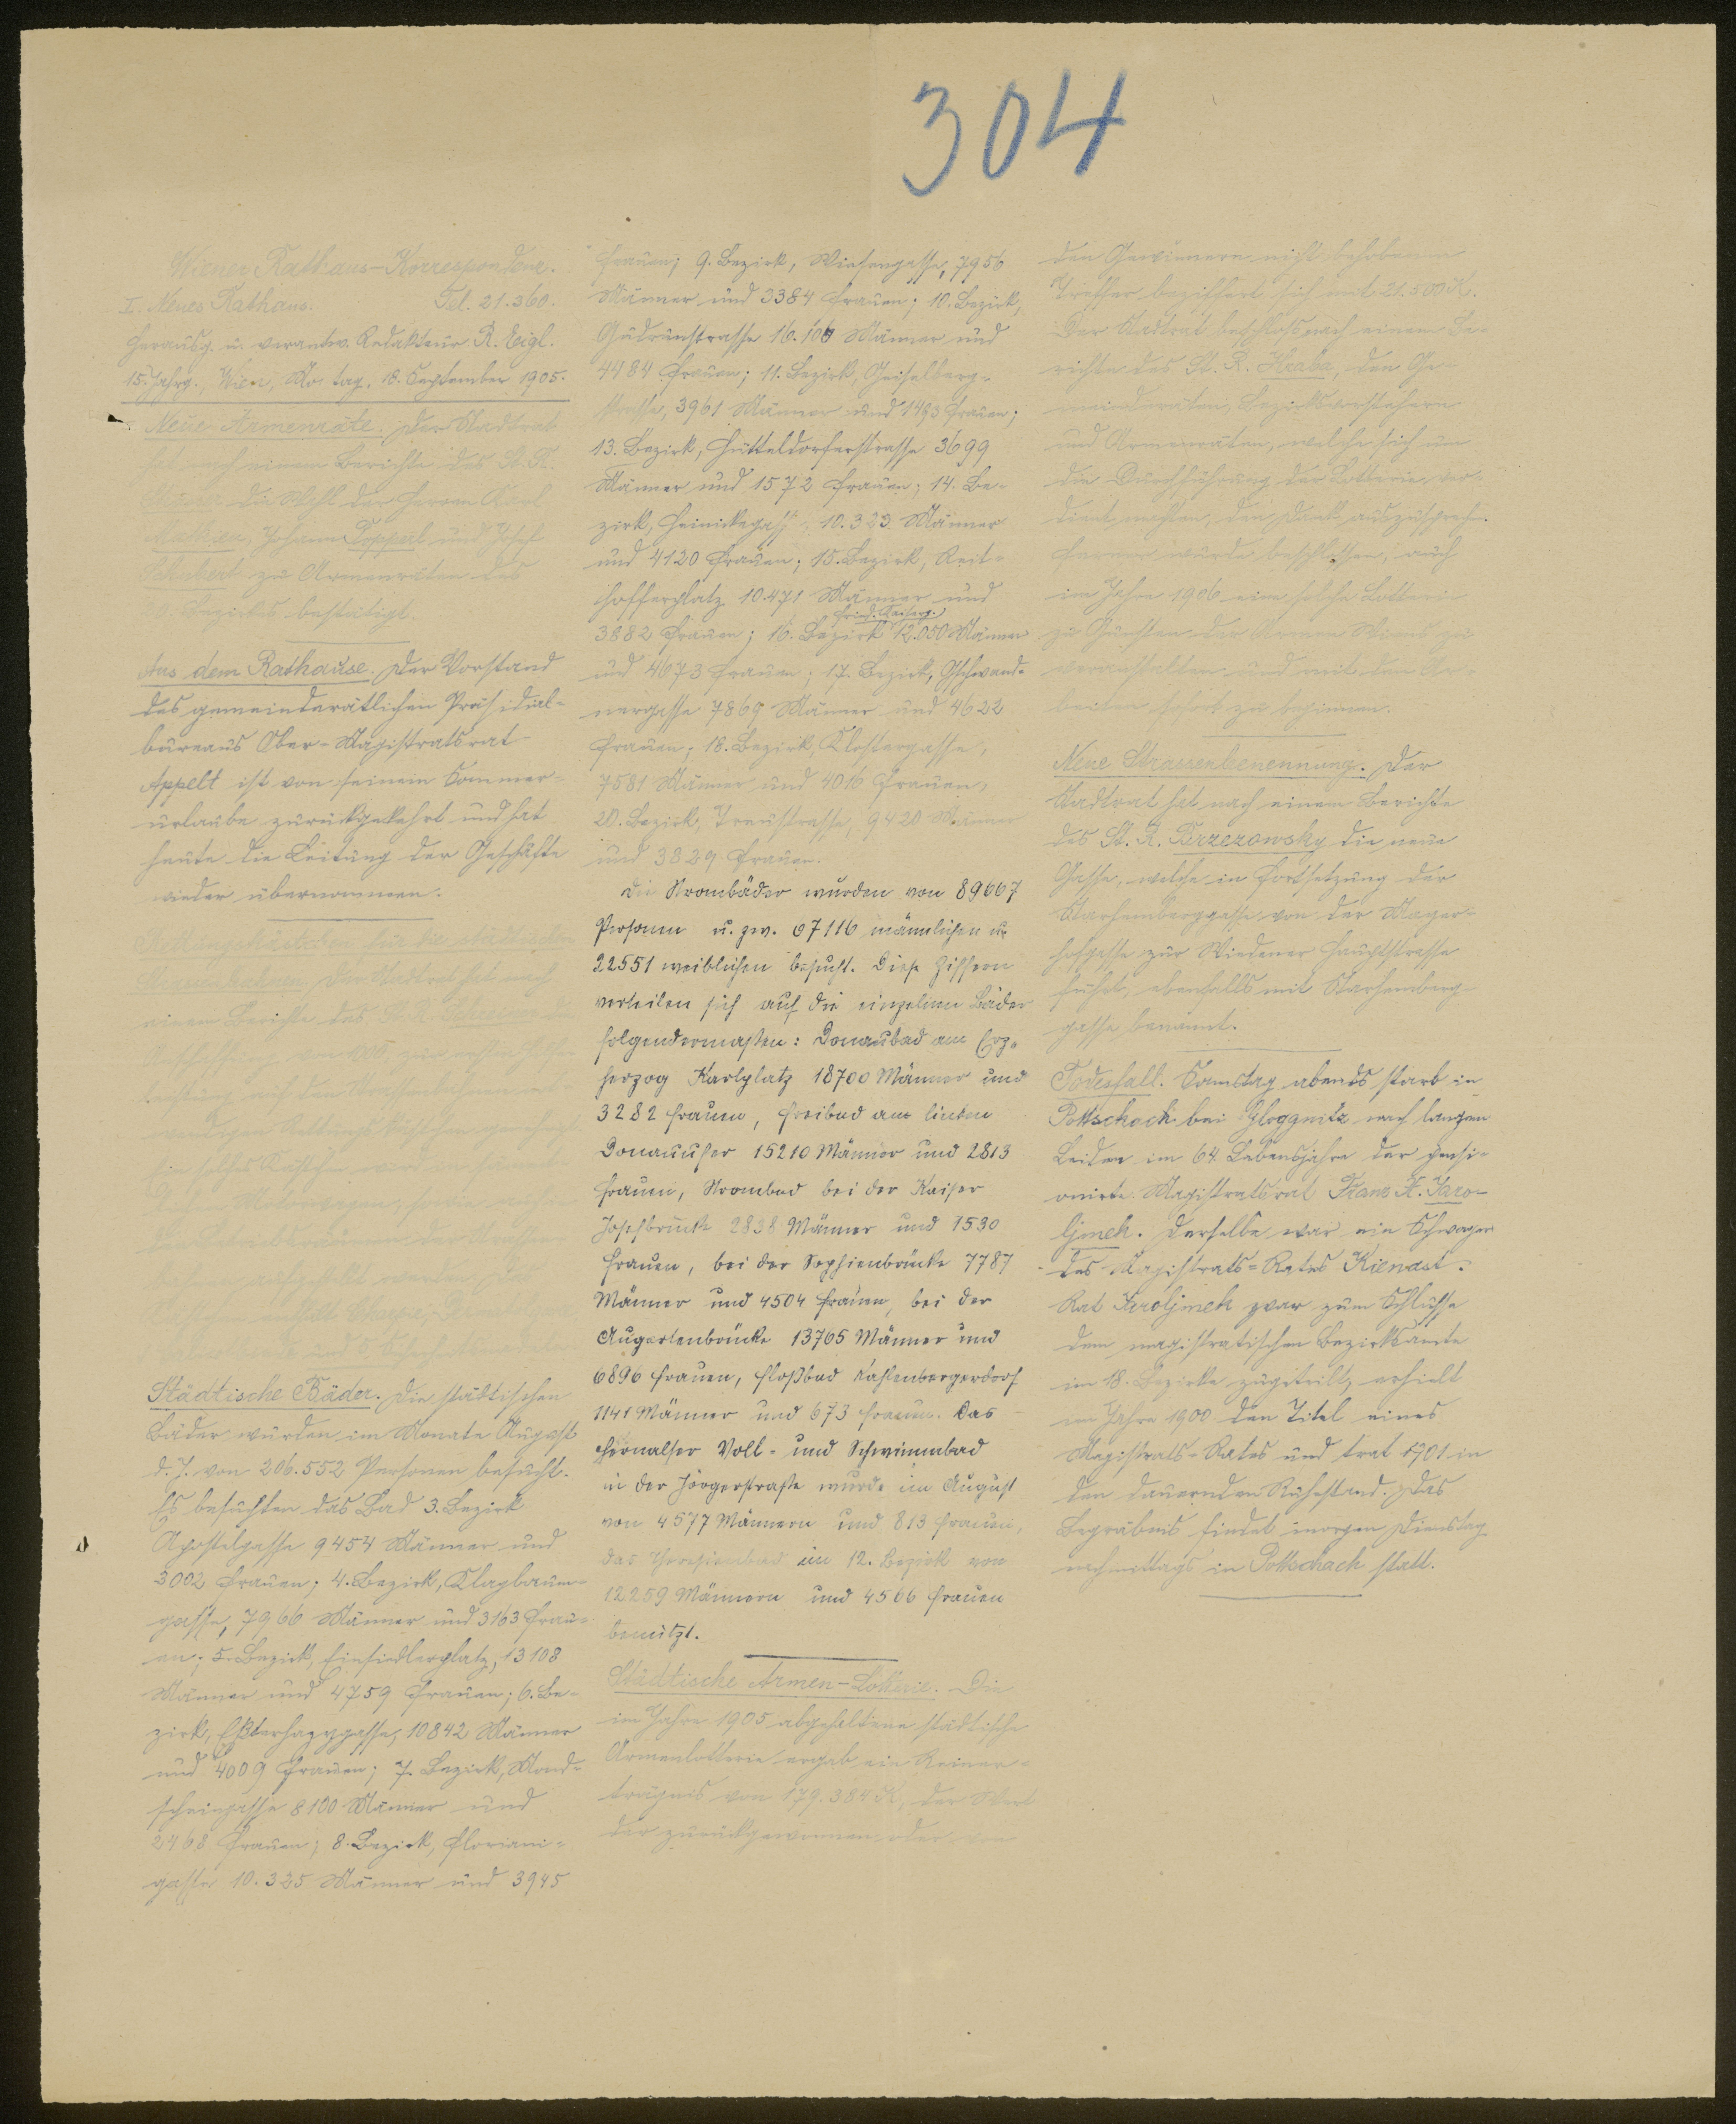 304
Wiener Rathaus-Korrespondenz.
I. Neues Rathaus. Tel. 21.360.
Herausg. u. verantw. Redakteur R. Eigl.
15. Jahrg., Wien, Mo tag, 18. September 1905.
Neue Armenräte. Der Stadtrat
nach einem Berichte des St. R.
die Wahl der Herren Karl
Johann Toppel und Josef
Schubert zu Armenräten des
Bezirkes bestätigt.
Aus dem Rathause. Der Vorstand
des gemeinderätlichen Präsidial-
bureaus Ober-Magistratsrat
Appelt ist von seinem Sommer-
urlaube zurückgekehrt und hat
heute die Leitung der Geschäfte
wieder übernommen.
Der Stadtrat hat nach
einem Berichte des St. R.
Städtische Bäder. Die städtischen
Bäder wurden im Monate August
d. J. von 206.552 Personen besucht.
Es besuchten das Bad 3. Bezirk
Apostelgasse 9454 Männer und
3002 Frauen; 4. Bezirk, Klagbaum-
gasse, 7966 Männer und 3163 Frau-
en; 5. Bezirk, Einsiedlerplatz, 13108
Männer und 4759 Frauen; 6. Be-
zirk, Esterhazygasse, 10842 Männer
und 4009 Frauen; 7. Bezirk, Mond-
scheingasse 8100 Männer und
2468 Frauen; 8. Bezirk, Floriani-
gasse 10.325 Männer und 3945
Frauen; 9. Bezirk, Wiesengasse, 7956
Männer und 3384 Frauen; 10. Bezirk,
Gudrunstrasse 16.106 Männer und
4484 Frauen; 11. Bezirk, Geiselberg-
strasse, 3961 Männer und 1493 Frauen;
13. Bezirk, Hütteldorferstrasse 3699
Männer und 1572 Frauen; 14. Be-
zirk, Heinickegasse 10.323 Männer
und 4120 Frauen; 15. Bezirk, Reit-
hofferplatz 10.471 Männer und
Fried. Kaiserg.
3882 Frauen; 16. Bezirk 12.050 Männer
und 4673 Frauen; 17. Bezirk, Gschwand-
nergasse 7869 Männer und 4622
Frauen; 18. Bezirk, Klostergasse,
7581 Männer und 4016 Frauen,
20. Bezirk, Treustrasse, 9420 Männer
und 3329 Frauen.
Die Strombäder wurden von 89667
Personen u. zw. 67116 männlichen u.
22551 weiblichen besucht. Diese Ziffern
verteilen sich auf die einzelnen Bäder
folgendermaßen: Donaubad am Erz-
herzog Karlplatz 18700 Männer und
3282 Frauen, Freibad am linken
Donauufer 15210 Männer und 2813
Frauen, Strombad bei der Kaiser
Josefsbrücke 2838 Männer und 1530
Frauen, bei der Sophienbrücke 7787
Männer und 4504 Frauen, bei der
Augartenbrücke 13765 Männer und
6896 Frauen, Floßbad Kahlenbergerdorf
1141 Männer und 673 Frauen. Das
Hernalser Voll- und Schwimmbad
in der Jörgerstraße wurde im August
von 4577 Männern und 813 Frauen,
das Theresienbad im 12. Bezirk von
12259 Männern und 4566 Frauen
benützt.
Städtische Armen-Lotterie. Die
im Jahre 1905 abgehaltene städtische
Armenlotterie ergab ein Reiner-
trägnis von 179.384 K, der Wert
der zurückgewonnen oder von
den Gewinnern nicht behobenen
Treffer beziffert sich mit 21.500 K.
Der Stadtrat beschloss nach einem Be-
richte des St. R. Hraba, den Ge-
meinderäten, Bezirksvorstehern
und Armenräten, welche sich um
die Durchführung der Lotterie ver-
dient machten, den Dank auszusprechen.
Ferner wurde beschlossen, auch
im Jahre 1906 eine solche Lotterie
zu Gunsten der Armen Wiens zu
veranstalten und mit den Ar-
beiten sofort zu beginnen.
Neue Strassenbenennung. Der
Stadtrat hat nach einem Berichte
des St. R. Brzezowsky die neue
Gasse, welche in Fortsetzung der
Starhemberggasse von der Mayer-
hofgasse zur Wiedener Hauptstrasse
führt, ebenfalls mit Starhemberg-
gasse benannt.
Todesfall. Samstag abends starb in
Pottschach bei Gloggnitz nach langem
Leiden im 64. Lebensjahre der pensi-
onierte Magistratsrat Franz X. Jaro-
ljmek. Derselbe war ein Schwager
des Magistrats-Rates Kienast.
Rat Jaroljmek war zum Schlusse
dem magistratischen Bezirksamte
im 18. Bezirke zugeteilt, erhielt
im Jahre 1900 den Titel eines
Magistrats-Rates und trat 1901 in
den dauernden Ruhestand. Das
Begräbnis findet morgen Dienstag
nachmittags in Pottschach statt.